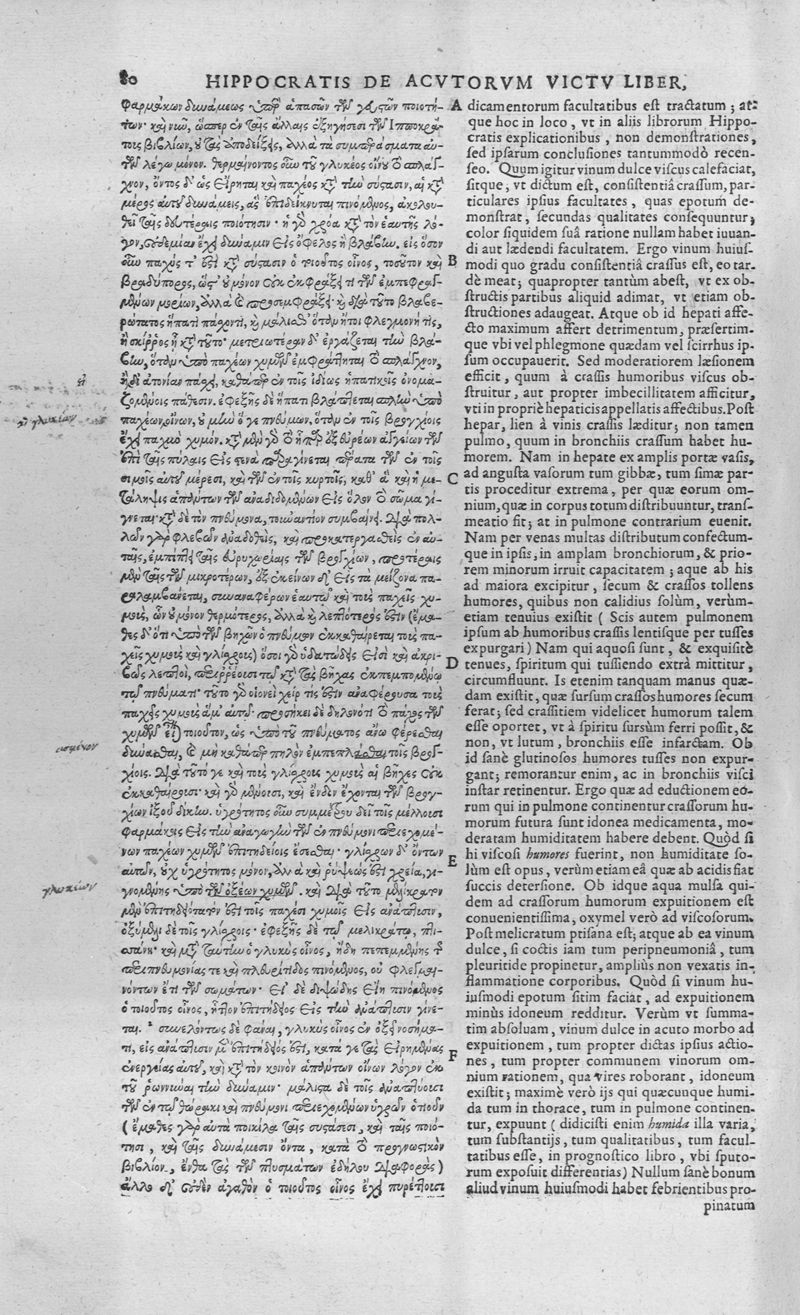 80 HIPPOCRATIS DE ACVTORVM VICTV LIBER,
φαρμάκων δυνάμεως ὑπὲρ ἁπασῶν τῶν ποιοτή-
των· καὶ νῦν, ὥσπερ ἐν ταῖς ἄλλαις ἐξηγήσεσι τῶν Ἱπποκρά-
τους βιβλίων, οὐ τὰς ἀποδείξεις, ἀλλὰ τὰ συμπεράσματα αὐ-
τῶν λέγω μόνον. θερμαίνοντος οὖν τοῦ γλυκέος οἴνου τὸ σπλάγ-
χνον, ὄντος δ' ὡς εἴρηται καὶ παχέος κατὰ τὴν σύστασιν, αἱ κατὰ
μέρος αὐτοῦ δυνάμεις, ἃς ἐπιδείκνυται πινόμενος, ἀκολου-
θεῖ ταῖς δευτέραις ποιότησιν· ἡ γὰρ χρόα κατὰ τὸν ἑαυτῆς λό-
γον, οὐδεμίαν ἔχει δύναμιν εἰς ὄφελος ἢ βλάβην. εἰς ὅσον
οὖν παχύς τ' ἐστὶ κατὰ σύστασιν ὁ τοιοῦτος οἶνος, τοσοῦτον καὶ
βραδύπορος, ὥστ' οὐ μόνον οὐκ ἐκφράξει τι τῶν ἐμπεφραγ-
μένων μορίων, ἀλλὰ καὶ προσεμφράξει· καὶ διὰ τοῦτο βλαβε-
ρώτατος ἥπατι πάσχοντι, καὶ μάλισθ' ὅταν ἤτοι φλεγμονή τις,
ἢ σκίρρος ᾖ κατ' αὐτό· μετριωτέραν δ' ἐργάζεται τὴν βλά-
βην, ὅταν ὑπὸ παχέων χυμῶν ἐμφράττηται τὸ σπλάγχνον,
ἢ δι' ἀτονίαν πάσχῃ, καθάπερ ἐν τοῖς ἰδίως ἡπατικοῖς ὀνομα-
ζομένοις πάθεσιν. ἐφεξῆς δὲ ἥπατι βλάπτεται σπλὴν ὑπὸ
παχέων οἴνων, οὐ μὴν ὅ γε πνεύμων, ὅταν ἐν τοῖς βρογχίοις
ἔχῃ παχὺν χυμόν. κατὰ μὲν γὰρ τὸ ἧπαρ ἐξ εὐρέων ἀγγείων τῶν
ἐπὶ ταῖς πύλαις εἰς στενὰ παραγίνεται πέρατα τῶν ἐν τοῖς
σιμοῖς αὐτοῦ μέρεσι, καὶ τῶν ἐν τοῖς κυρτοῖς, καθ' ἃ καὶ ἡ με-
τάληψις ἁπάντων τῶν ἀναδιδομένων εἰς ὅλον τὸ σῶμα γί-
γνεται· κατὰ δὲ τὸν πνεύμονα, τοὐναντίον συμβαίνει. διὰ πολ-
λῶν γὰρ φλεβῶν ἀναδοθεὶς, καὶ προκατεργασθεὶς ἐν αὐ-
ταῖς, ἐμπίπτει ταῖς εὐρυχωρίαις τῶν βρογχίων, προτέραις
μὲν ταῖς τῶν μικροτέρων, ἐξ ἐκείνων δ' εἰς τὰ μείζονα πα-
ραλαμβάνεται, συναναφέρων ἑαυτῷ καὶ τοὺς παχεῖς χυ-
μοὺς, ὧν οὐ μόνον θερμότερος, ἀλλὰ καὶ λεπτότερός ἐστιν (ἔμα-
θες δ' ὅτι ὑπὸ τῶν βηχῶν ὁ πνεύμων ἐκκαθαίρεται τοὺς πα-
χεῖς χυμοὺς καὶ γλίσχρους) ὅσοι γὰρ ὑδατώδεις εἰσὶ καὶ ἀκρι-
βῶς λεπτοὶ, περιρρέουσι τῷ κατὰ τὰς βῆχας ἐκπεμπομένῳ
πνεύματι· τοῦτο γὰρ οἱονεὶ χείρ τίς ἐστιν ἀναφέρουσα τοὺς
παχεῖς χυμοὺς ἅμ' αὑτῷ· προσήκει δὲ δηλονότι τὸ πάχος τῶν
χυμῶν εἶναι τοιοῦτον, ὡς ὑπὸ τοῦ πνεύματος ἄνω φέρεσθαι
δύνασθαι, καὶ μὴ καθάπερ πηλὸν ἐμπεπλάσθαι τοῖς βρογ-
χίοις. διὰ τοῦτό γε καὶ τοὺς γλίσχρους χυμοὺς αἱ βῆχες οὐκ
ἐκκαθαίρουσι· καὶ γὰρ μένουσι, καὶ ἐνδὲν ἔχονται τοῖς βρογ-
χίων ἰξοῦ δίκην. ὑγρότητος οὖν συμμέτρου δεῖ τοῖς μέλλουσι
φαρμάκοις εἰς τὴν ἀναγωγὴν τῶν ἐν πνεύμονι περιεχομέ-
νων παχέων χυμῶν ἐπιτηδείοις ἔσεσθαι· γλίσχρων δ' ὄντων
αὐτῶν, οὐχ ὑγρότητος μόνον, ἀλλὰ καὶ ῥύψεώς ἐστι χρεία, γι-
γνομένης ὑπὸ τῶν ὀξέων χυμῶν. καὶ διὰ τοῦτο μελίκρατον
μὲν ἐπιτηδειότατόν ἐστι τοῖς παχέσι χυμοῖς εἰς ἀνάπτυσιν,
ὀξύμελι δὲ τοῖς γλίσχροις· ἐφεξῆς δὲ τῷ μελικράτῳ, πτι-
σάνη· καὶ μετὰ ταύτην ὁ γλυκὺς οἶνος, ἤδη πεπεμμένης τῆς
περιπνευμονίας τε καὶ πλευρίτιδος πινόμενος, οὐ φλεγμαι-
νόντων ἔτι τῶν σωμάτων· εἰ δὲ διψώδης εἴη πινόμενος
ὁ τοιοῦτος οἶνος, ἧττον ἐπιτήδειος εἰς τὴν ἀνάπτυσιν γίνε-
ται. συνελόντως δὲ φάναι, γλυκὺς οἶνος ἐν ὀξεῖ νοσήμα-
τι, εἰς ἀνάπτυσιν μὲν ἐπιτήδειός ἐστι, κατά γε τὰς εἰρημένας
ἐνεργείας αὐτοῦ, καὶ κατὰ τὸν κοινὸν ἁπάντων οἴνων λόγον ἐκ
τοῦ ῥωννύναι τὴν δύναμιν· μάλιστα δὲ τοῖς ἀναπτύουσι
τῶν ἐν τῷ θώρακι καὶ πνεύμονι περιεχομένων ὑγρῶν ὁτιοῦν
(ἔμαθες γὰρ αὐτὰ ποικίλα ταῖς συστάσεσι, καὶ ταῖς ποιό-
τησι, καὶ ταῖς δυνάμεσιν ὄντα, κατὰ τὸ προγνωστικὸν
βιβλίον, ἔνθα τὰς τῶν πτυσμάτων ἐδήλου διαφοράς)
ἄλλο δ' οὐδὲν ἀγαθὸν ὁ τοιοῦτος οἶνος ἔχει πυρέττουσι
A dicamentorum facultatibus est tractatum; at-
que hoc in loco, vt in alijs librorum Hippo-
cratis explicationibus, non demonstrationes,
sed ipsarum conclusiones tantummodò recen-
seo. Quum igitur vinum dulce viscus calefaciat,
sitque, vt dictum est, consistentiâ crassum, par-
ticulares ipsius facultates, quas epotum de-
monstrat, secundas qualitates consequuntur;
color siquidem suâ ratione nullam habet iuuan-
di aut lædendi facultatem. Ergo vinum huius-
B modi quo gradu consistentiâ crassus est, eo tar-
dè meat; quapropter tantum abest, vt ex ob-
structis partibus aliquid adimat, vt etiam ob-
structiones adaugeat. Atque ob id hepati affe-
cto maximum affert detrimentum, præsertim-
que vbi vel phlegmone quædam vel scirrhus ip-
sum occupauerit. Sed moderatiorem læsionem
efficit, quum à crassis humoribus viscus ob-
struitur, aut propter imbecillitatem afficitur,
vti in propriè hepaticis appellatis affectibus. Post
hepar, lien à vinis crassis læditur; non tamen
pulmo, quum in bronchiis crassum habet hu-
morem. Nam in hepate ex amplis portæ vasis,
C ad angusta vasorum tum gibbæ, tum simæ par-
tis proceditur extrema, per quæ eorum om-
nium, quæ in corpus totum distribuuntur, trans-
meatio fit; at in pulmone contrarium euenit.
Nam per venas multas distributum confectum-
que in ipsis, in amplam bronchiorum, & prio-
rem minorum irruit capacitatem; aque ab his
ad maiora excipitur, secum & crassos tollens
humores, quibus non calidius solùm, verùm-
etiam tenuius existit (Scis autem pulmonem
ipsum ab humoribus crassis lentisque per tusses
expurgari) Nam qui aquosi sunt, & exquisitè
D tenues, spiritum qui tussiendo extrà mittitur,
circumfluunt. Is etenim tanquam manus quæ-
dam existit, quæ sursum crassos humores secum
ferat; sed crassitiem videlicet humorum talem
esse oportet, vt à spiritu sursùm ferri possit, &
non, vt lutum, bronchiis esse infarctam. Ob
id sanè glutinosos humores tusses non expur-
gant; remorantur enim, ac in bronchiis visci
instar retinentur. Ergo quæ ad eductionem eo-
rum qui in pulmone continentur crassorum hu-
morum futura sunt idonea medicamenta, mo-
deratam humiditatem habere debent. Quòd si
E hi viscosi humores fuerint, non humiditate so-
lùm est opus, verùm etiam ea quæ ab acidis fiat
succis detersione. Ob idque aqua mulsa qui-
dem ad crassorum humorum expuitionem est
conuenientissima, oxymel verò ad viscosorum.
Post melicratum ptisana est; atque ab ea vinum
dulce, si coctis iam tum peripneumonia, tum
pleuritide propinetur, ampliùs non vexatis in-
flammatione corporibus. Quòd si vinum hu-
iusmodi epotum sitim faciat, ad expuitionem
minùs idoneum redditur. Verùm vt summa-
tim absoluam, vinum dulce in acuto morbo ad
F expuitionem, tum propter dictas ipsius actio-
nes, tum propter communem vinorum om-
nium rationem, qua vires roborant, idoneum
existit; maximè verò ijs qui quæcunque humi-
da tum in thorace, tum in pulmone continen-
tur, expuunt (didicisti enim humida illa varia,
tum substantijs, tum qualitatibus, tum facul-
tatibus esse, in prognostico libro, vbi sputo-
rum exposuit differentias) Nullum sanè bonum
aliud vinum huiusmodi habet febrientibus pro-
pinatum